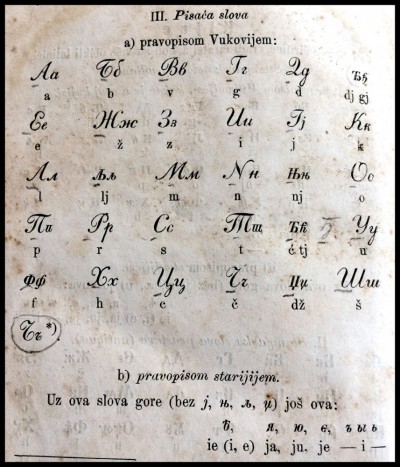 III. Pisaća slova
a) pravopisom Vukovijem:
Аа Бб Вв Гг Дд Ђђ
a b v g d dj gj
Ее Жж Зз Ии Јј Кк
e ž z i j k
Лл Љљ Мм Нн Њњ Оо
l lj m n nj o
Пп Рр Сс Тт Ћћ Уу
p r s t ć tj u
Фф Хх Цц Чч Џџ Шш
f h c č dž š
Ъъ*)
b) pravopisom starijijem.
Uz ova slova gore (bez ј, њ, љ, џ) još ova:
ѣ, я, ю, є, ъ ы ь
ie (i, e) ja, ju, je — i —